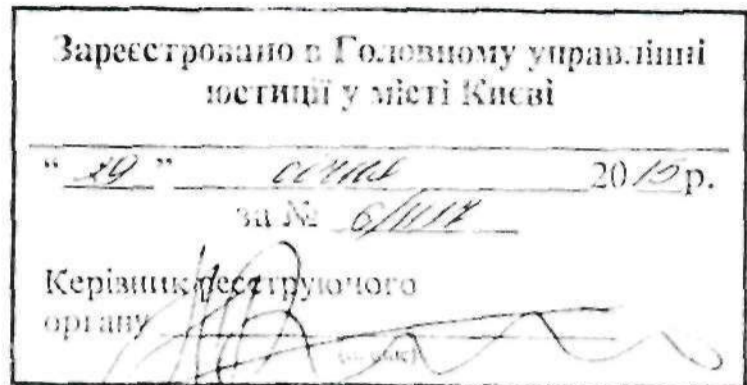 Зареєстровано в Головному управлінні
юстиції у місті Києві
“ 29 ” січня 2015 р.
за № 6/1117
Керівник реєструючого
органу
(підпис)